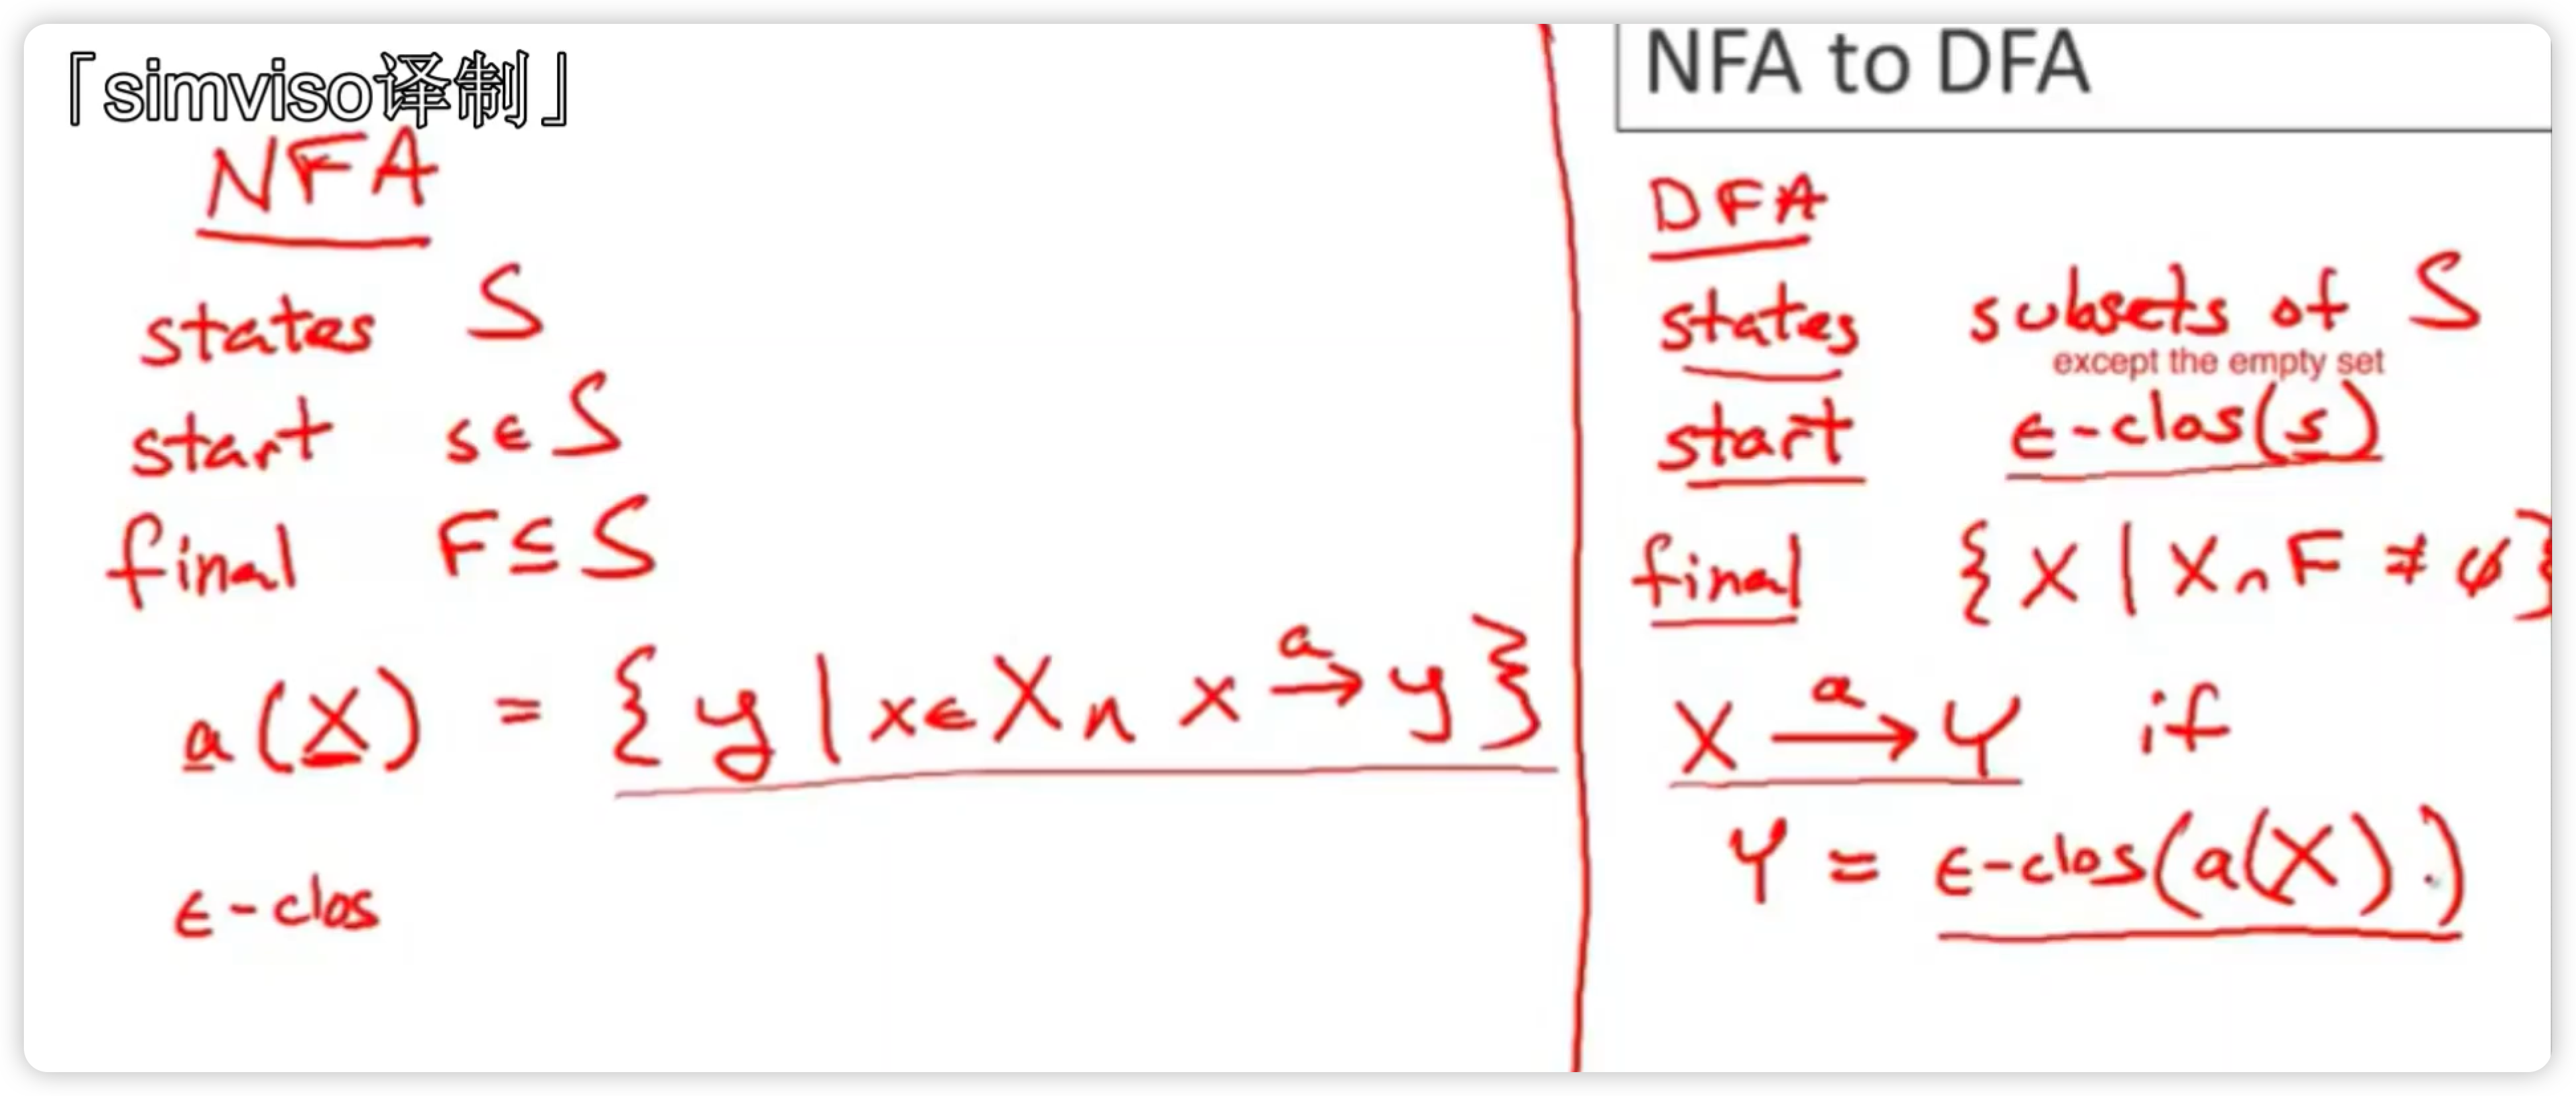 「simviso译制」
NFA
states S
start s∈S
final F⊆S
a(X) = {y | x∈X ∧ x →a y}
ε-clos
NFA to DFA
DFA
states subsets of S
except the empty set
start ε-clos(s)
final {X | X∩F ≠ ∅}
X →a Y if
Y = ε-clos(a(X))